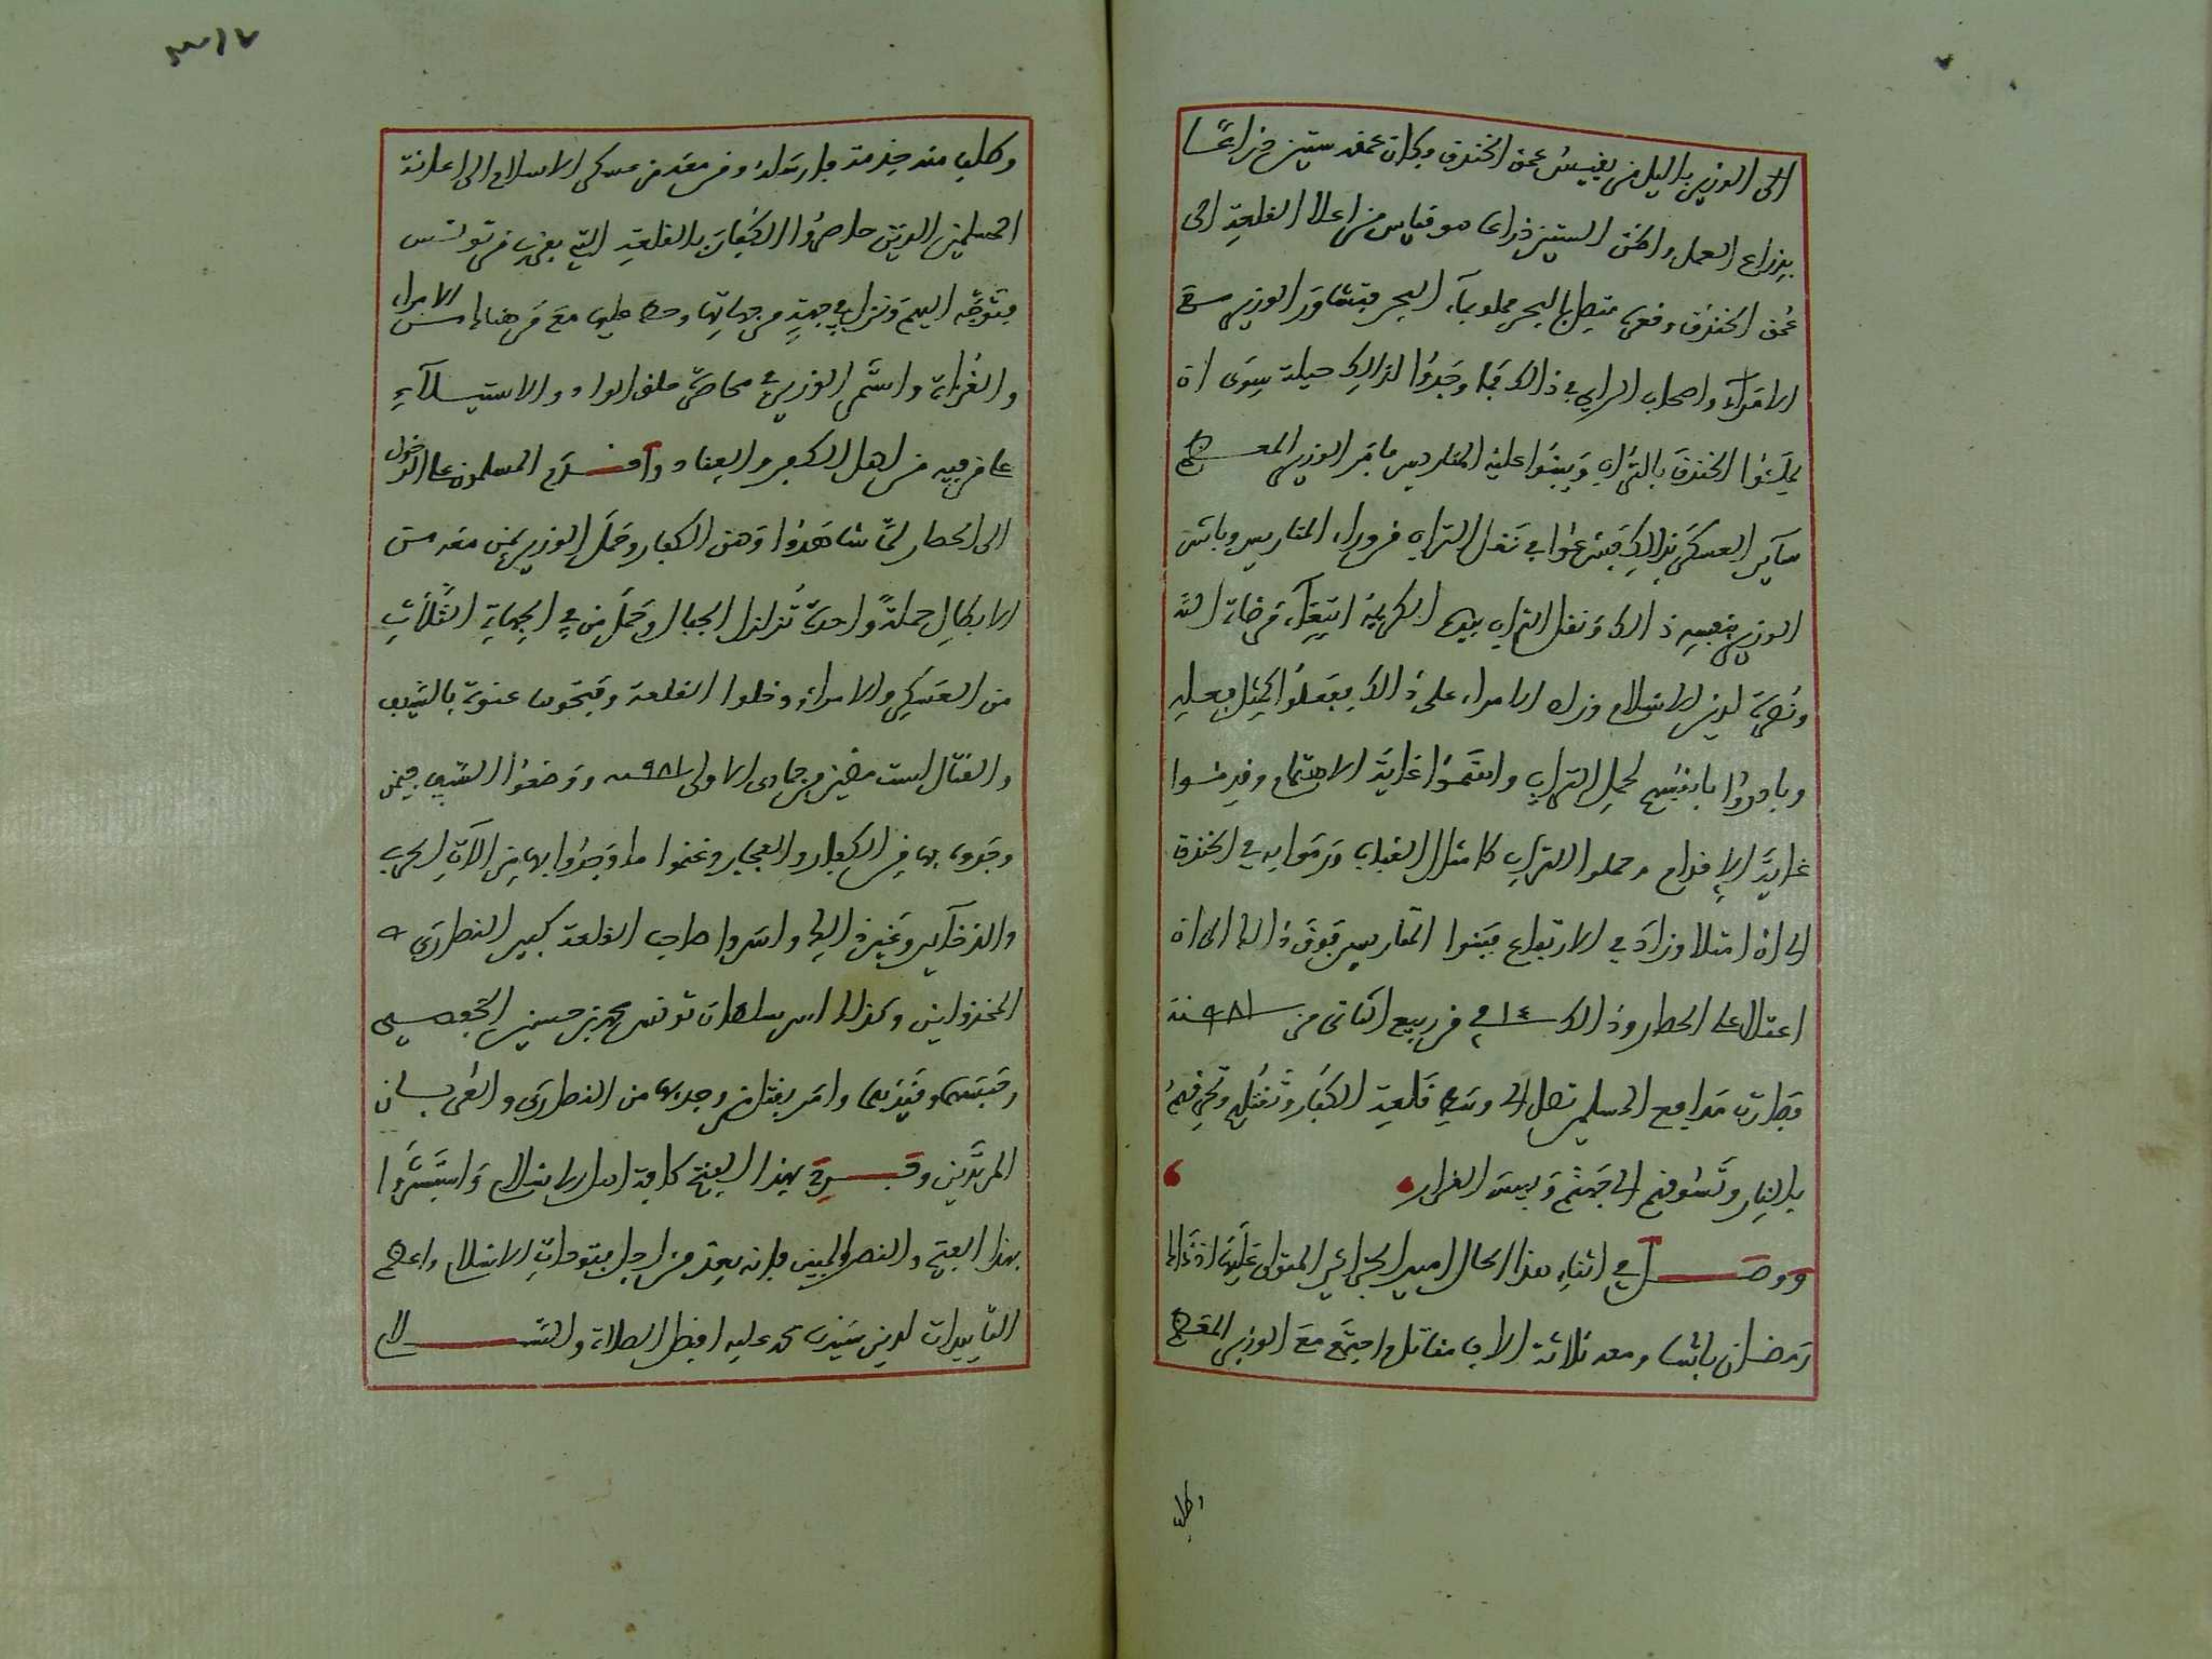 الى الوزير باليل من يقيس عمق الخندق وكان عمقه ستين ذراعا
بذراع العمل واظن الستين ذراعا هو قياس من اعلا القلعة الى
عمق الخندق وقعره متصل بالبحر مملو بماء البحر فتشاور الوزير مع
الامراء واصحاب الراي في ذالك فما وجدوا لذالك حيلة سوى ان
يملئوا الخندق بالتراب ويبنوا عليه المتاريس فامر الوزير المعظم
ساير العسكر بذالك فشرعوا في نقل التراب من وراء المتاريس وباشر
الوزير بنفسه ذالك ونقل التراب بيده الكريمة ابتغاء مرضات الله
ونصرة لدين الاسلام وراه الامراء على ذالك ففعلوا كمثل فعله
وبادروا بانفسهم لحمل التراب واهتموا غاية الاهتمام وقدموا
غاية الاقدام وحملوا التراب كامثال القباب ورموا به في الخندق
الى ان امتلا وزاد في الارتفاع فبنوا المتاريس فوق ذالك الى ان
اعتلا على الحصار وذالك في ١٤ من ربيع الثاني من سنة ٩٨١
فصارت مدافع المسلمين تصل الى وسط قلعة الكفار وتقتلهم وتحرقهم
بالنار وتسوقهم الى جهنم وبيس القرار
ووصل في اثناء هذا الحال امير الجزائر المتولى عليها اذ ذاك
رمضان باشا ومعه ثلاثة الاف مقاتل واجتمع مع الوزير المعظم
وطلب
وطلب منه خدمة فارسله ومن معه من عسكر الاسلام الى اعانة
المسلمين الذين حاصروا الكفار بالقلعة التي بقرب من تونس
فتوجه اليهم ونزل في جهة من جهاتها وحط عليها مع من هناك من الامراء
والغزاة واستمر الوزير في محاصرة حلق الواد والاستيلاء
على من فيه من اهل الكفر والعناد واقدم المسلمون على الدخول
الى الحصار لما شاهدوا وهن الكفار وحمل الوزير بمن معه من
الابطال حملة واحدة تزلزل الجبال وحمل من في الجهات الثلاث
من العسكر والامراء ودخلوا القلعة وفتحوها عنوة بالسيف
والقتال لست مضين من جمادى الاولى سنة ٩٨١ ووضعوا السيف فيمن
وجدوه بها من الكفار والفجار وغنموا ما وجدوا بها من الآت الحرب
والذخاير وغير ذالك واسروا صاحب القلعة كبير النصارى
المخذولين وكذلك اسر سلطان تونس محمد بن حسين الحفصي
وحبسهما وقيدهما وامر بقتل من وجد بها من النصارى والعربان
المرتدين وفرح بهذا الفتح كافة اهل الاسلام واستبشروا
بهذا الفتح والنصر المبين فانه يعد من اجل فتوحات الاسلام واعظم
التاييدات لدين سيدنا محمد عليه افضل الصلاة والسلام